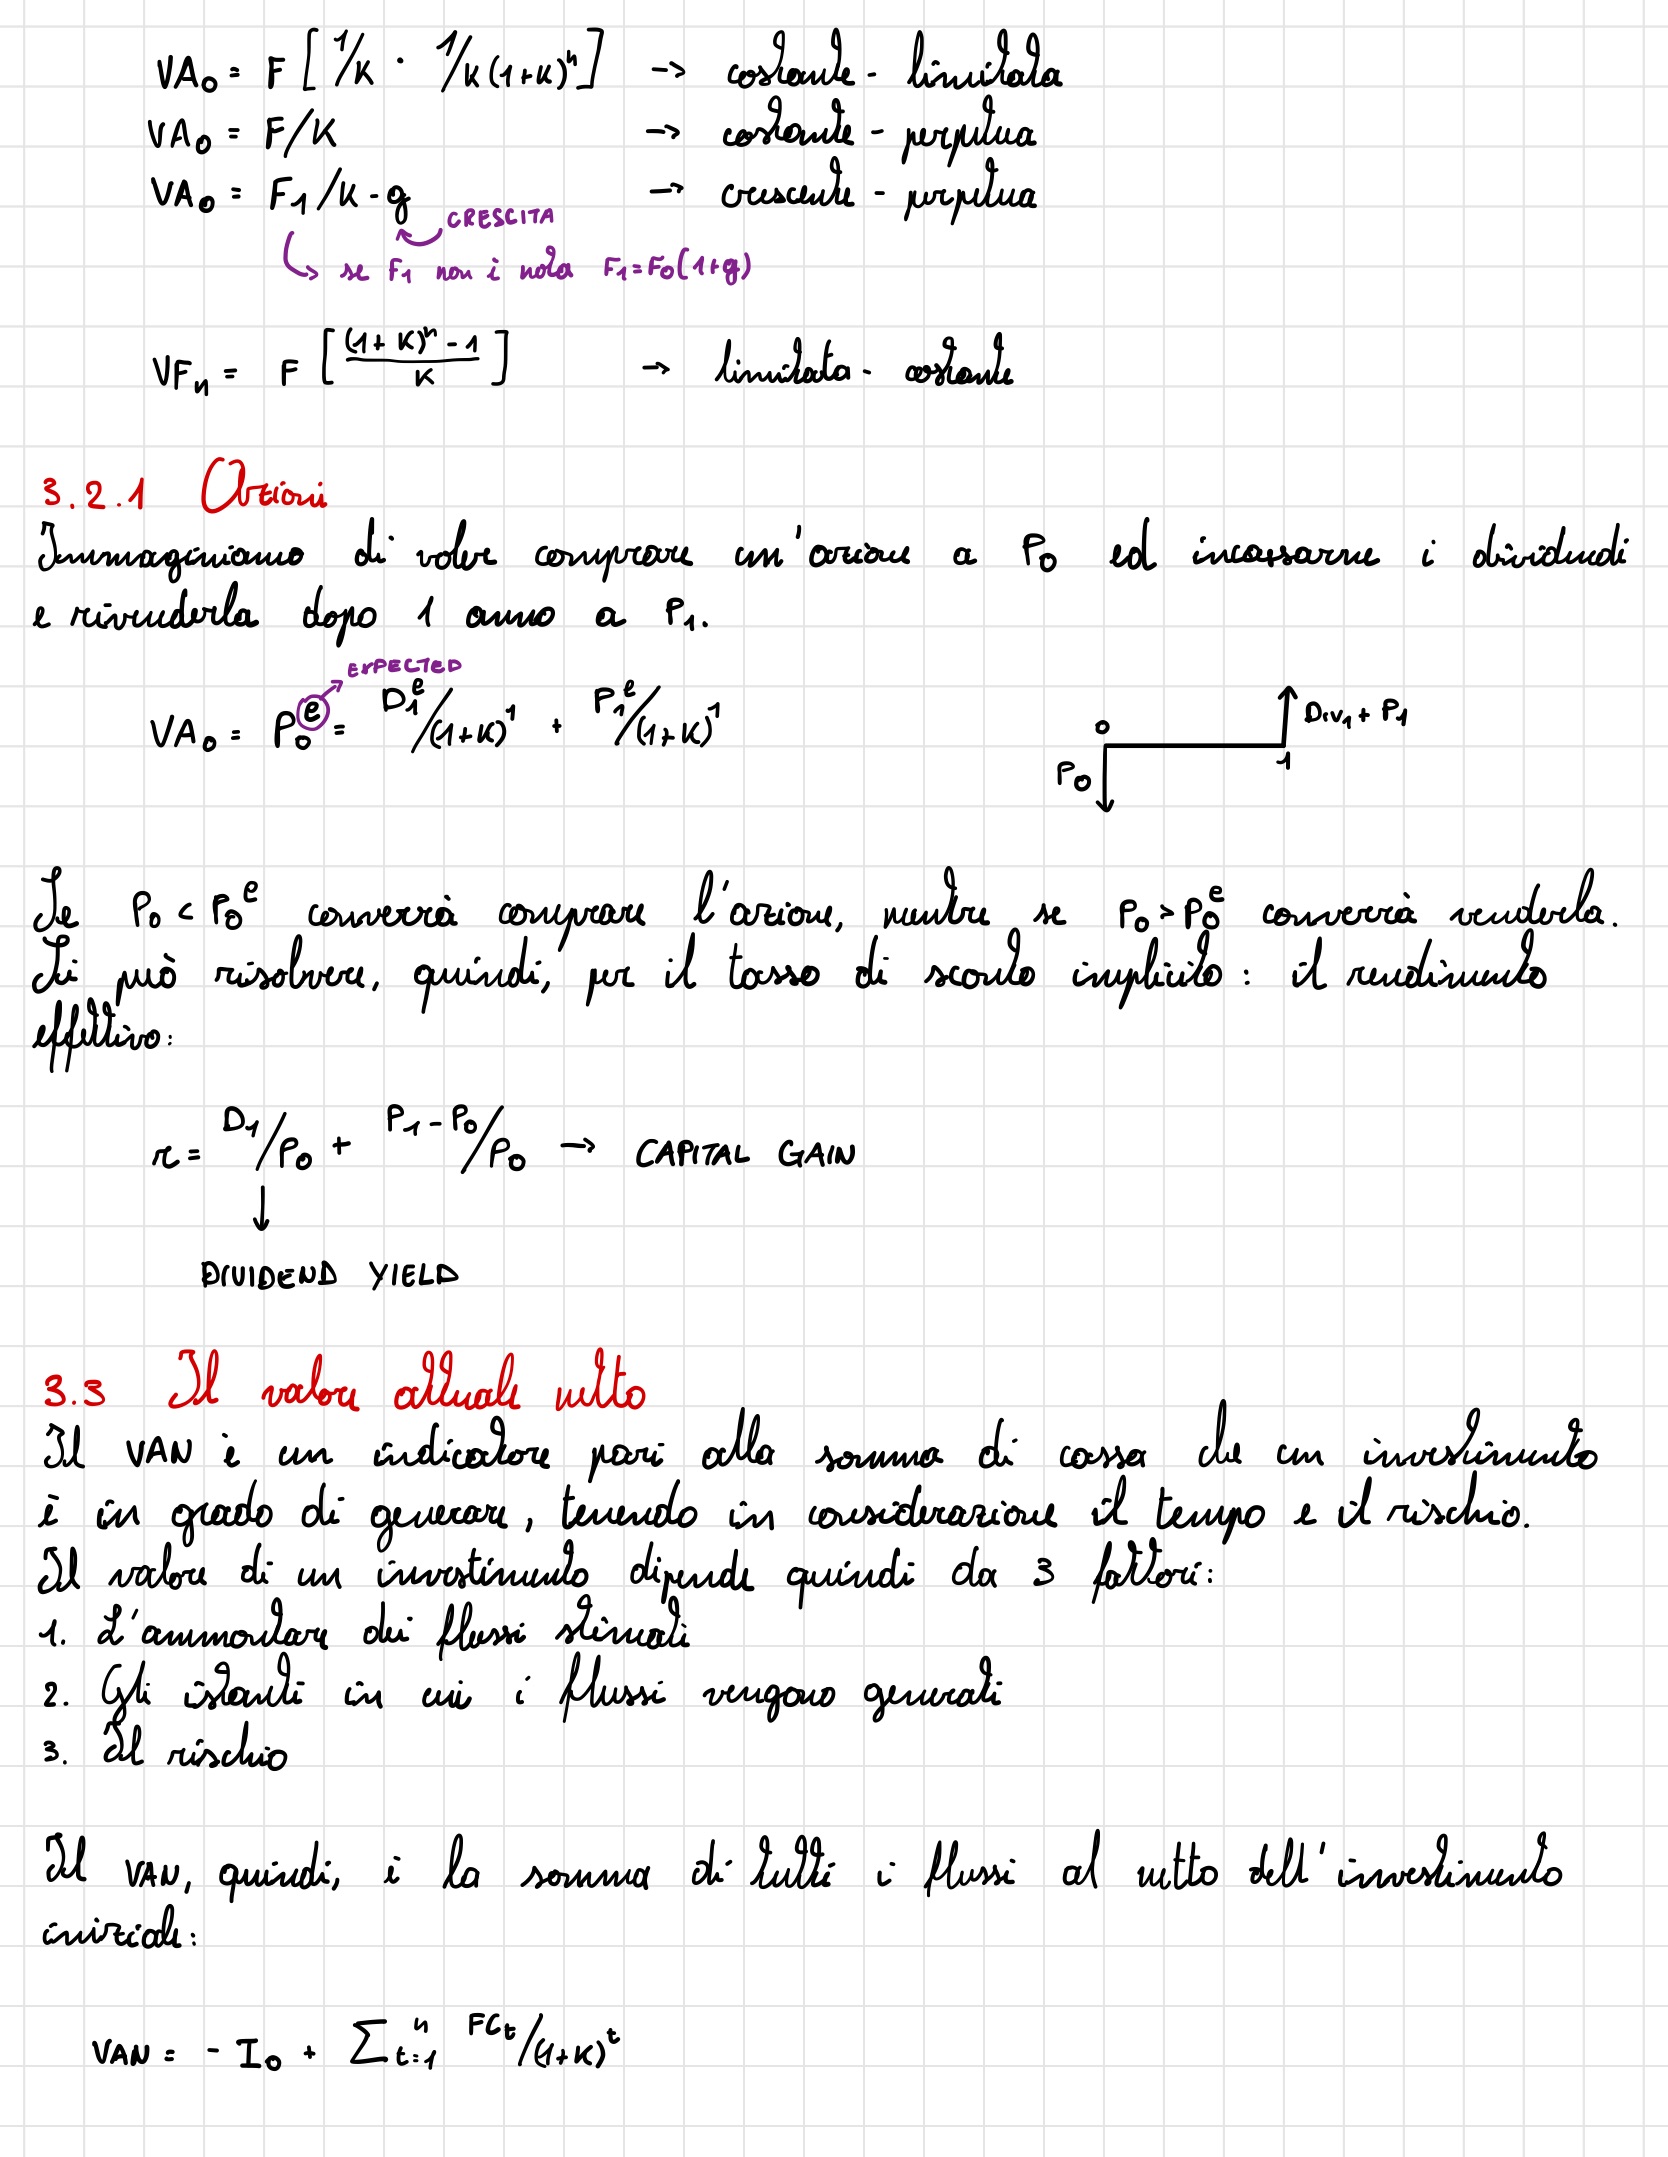 VA₀ = F [ 1/K · 1/K(1+K)ⁿ ] → costante - limitata
VA₀ = F/K → costante - perpetua
VA₀ = F₁/K-g → crescente - perpetua
CRESCITA
se F₁ non è nota F₁=F₀(1+g)
VFₙ = F [ (1+K)ⁿ - 1 / K ] → limitata - costante
3.2.1 Azioni
Immaginiamo di voler comprare un'azione a P₀ ed incassarne i dividendi
e rivenderla dopo 1 anno a P₁.
EXPECTED
VA₀ = P₀ᵉ = D₁ᵉ/(1+K)¹ + P₁ᵉ/(1+K)¹
0 Div₁ + P₁
P₀ 1
Se P₀ < P₀ᵉ converrà comprare l'azione, mentre se P₀ > P₀ᵉ converrà venderla.
Si può risolvere, quindi, per il tasso di sconto implicito: il rendimento
effettivo:
r = D₁/P₀ + P₁ - P₀/P₀ → CAPITAL GAIN
↓
DIVIDEND YIELD
3.3 Il valore attuale netto
Il VAN è un indicatore pari alla somma di cassa che un investimento
è in grado di generare, tenendo in considerazione il tempo e il rischio.
Il valore di un investimento dipende quindi da 3 fattori:
1. L'ammontare dei flussi stimati
2. Gli istanti in cui i flussi vengono generati
3. Il rischio
Il VAN, quindi, è la somma di tutti i flussi al netto dell'investimento
iniziale:
VAN = - I₀ + ∑ₜ₌₁ⁿ FCₜ/(1+K)ᵗ